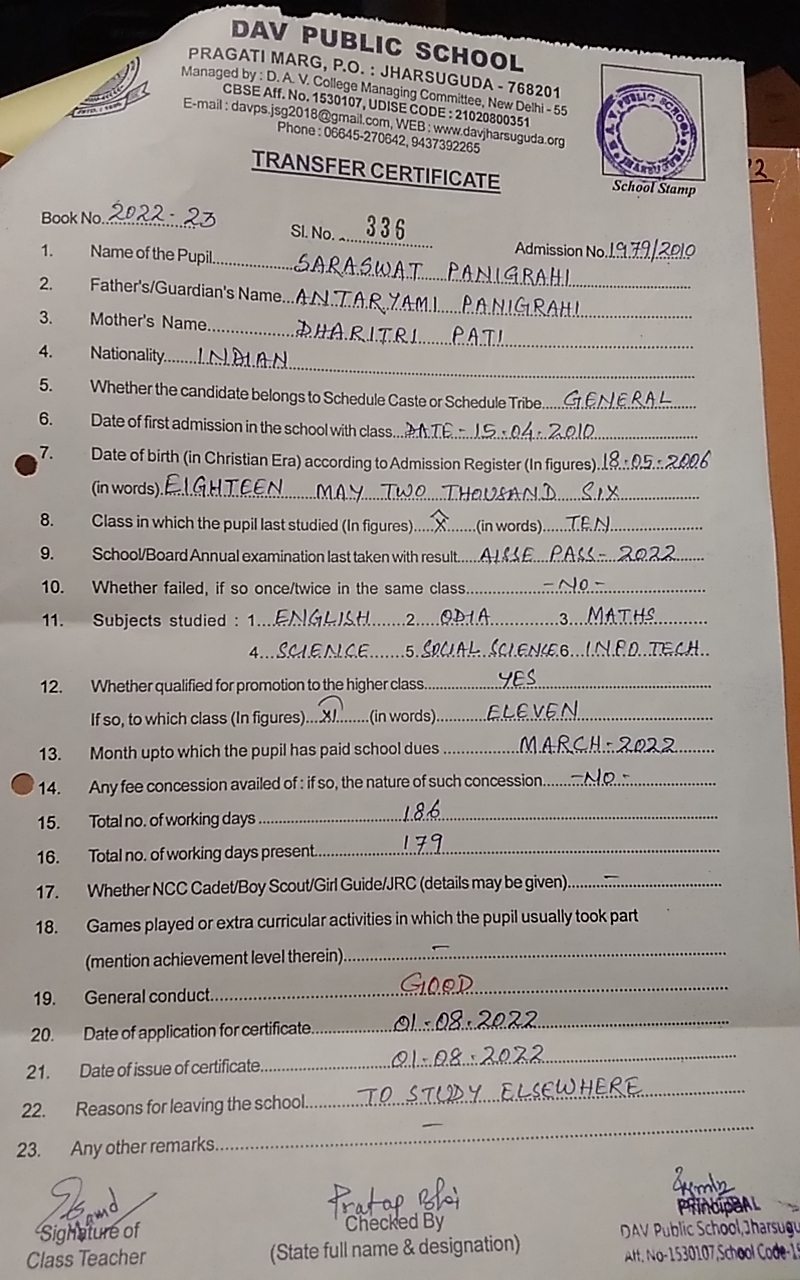 DAV PUBLIC SCHOOL
PRAGATI MARG, P.O. : JHARSUGUDA - 768201
Managed by : D. A. V. College Managing Committee, New Delhi - 55
CBSE Aff. No. 1530107, UDISE CODE : 21020800351
E-mail : davps.jsg2018@gmail.com, WEB : www.davjharsuguda.org
Phone : 06645-270642, 9437392265
School Stamp
TRANSFER CERTIFICATE
Book No. 2022-23 Sl. No. 336 Admission No. 1979/2010
1. Name of the Pupil SARASWAT PANIGRAHI
2. Father's/Guardian's Name ANTARYAMI PANIGRAHI
3. Mother's Name DHARITRI PATI
4. Nationality INDIAN
5. Whether the candidate belongs to Schedule Caste or Schedule Tribe GENERAL
6. Date of first admission in the school with class DATE - 15.04.2010
7. Date of birth (in Christian Era) according to Admission Register (In figures) 18.05.2006
(in words) EIGHTEEN MAY TWO THOUSAND SIX
8. Class in which the pupil last studied (In figures) X (in words) TEN
9. School/Board Annual examination last taken with result AISSE PASS- 2022
10. Whether failed, if so once/twice in the same class -NO-
11. Subjects studied : 1 ENGLISH 2 ODIA 3 MATHS
4 SCIENCE 5 SOCIAL SCIENCE 6 INFO TECH
12. Whether qualified for promotion to the higher class YES
If so, to which class (In figures) XI (in words) ELEVEN
13. Month upto which the pupil has paid school dues MARCH-2022
14. Any fee concession availed of : if so, the nature of such concession -NO-
15. Total no. of working days 186
16. Total no. of working days present 179
17. Whether NCC Cadet/Boy Scout/Girl Guide/JRC (details may be given) -
18. Games played or extra curricular activities in which the pupil usually took part
(mention achievement level therein) -
19. General conduct GOOD
20. Date of application for certificate 01-08-2022
21. Date of issue of certificate 01-08-2022
22. Reasons for leaving the school TO STUDY ELSEWHERE
23. Any other remarks -
Signature of
Class Teacher
Pratap Bhoi
Checked By
(State full name & designation)
PRINCIPAL
DAV Public School, Jharsugu
Aff. No-1530107, School Code-15